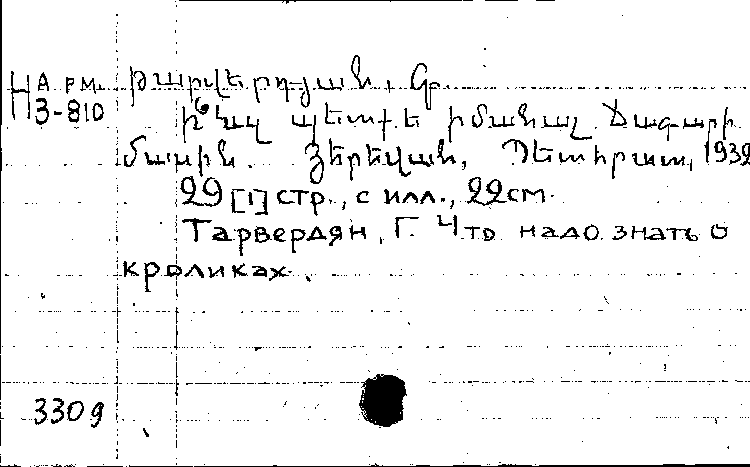 НАРМ. Թարվերդյան, Գ.
3-810 Ի՞նչ պետք է իմանալ ճագարի
մասին. Յերեվան, Պետհրատ, 1932
29 [1] стр., с илл., 22 см.
Тарвердян, Г. Что надо знать о
кроликах.
3309